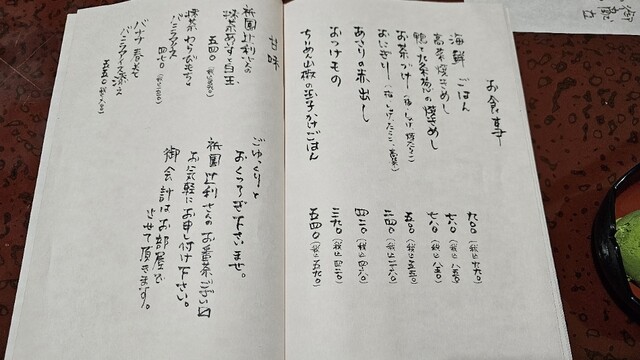 お食事
海鮮ごはん 九〇〇(税込九九〇)
高菜焼きめし 七八〇(税込八五〇)
鴨と九条葱の焼きめし 七八〇(税込八五〇)
お茶づけ(梅、しゃけ、焼たらこ) 五〇〇(税込五五〇)
おにぎり(梅、しゃけ、たらこ、高菜) 二四〇(税込二六〇)
あさりの赤出し 四二〇(税込四六〇)
おつけもの 三九〇(税込四二〇)
ちりめん山椒の玉子かけごはん 五四〇(税込五九〇)
甘味
祇園辻利さんの
抹茶あいすと白玉
五四〇(税込五九〇)
抹茶わらびもちと
バニラアイス
四七〇
バナナ春巻き
バニラアイス添え
五五〇
ごゆっくりと
おくつろぎ下さいませ。
祇園辻利さんのお番茶ござい〼
お気軽にお申し付け下さい。
御会計はお部屋で
させて頂きます。